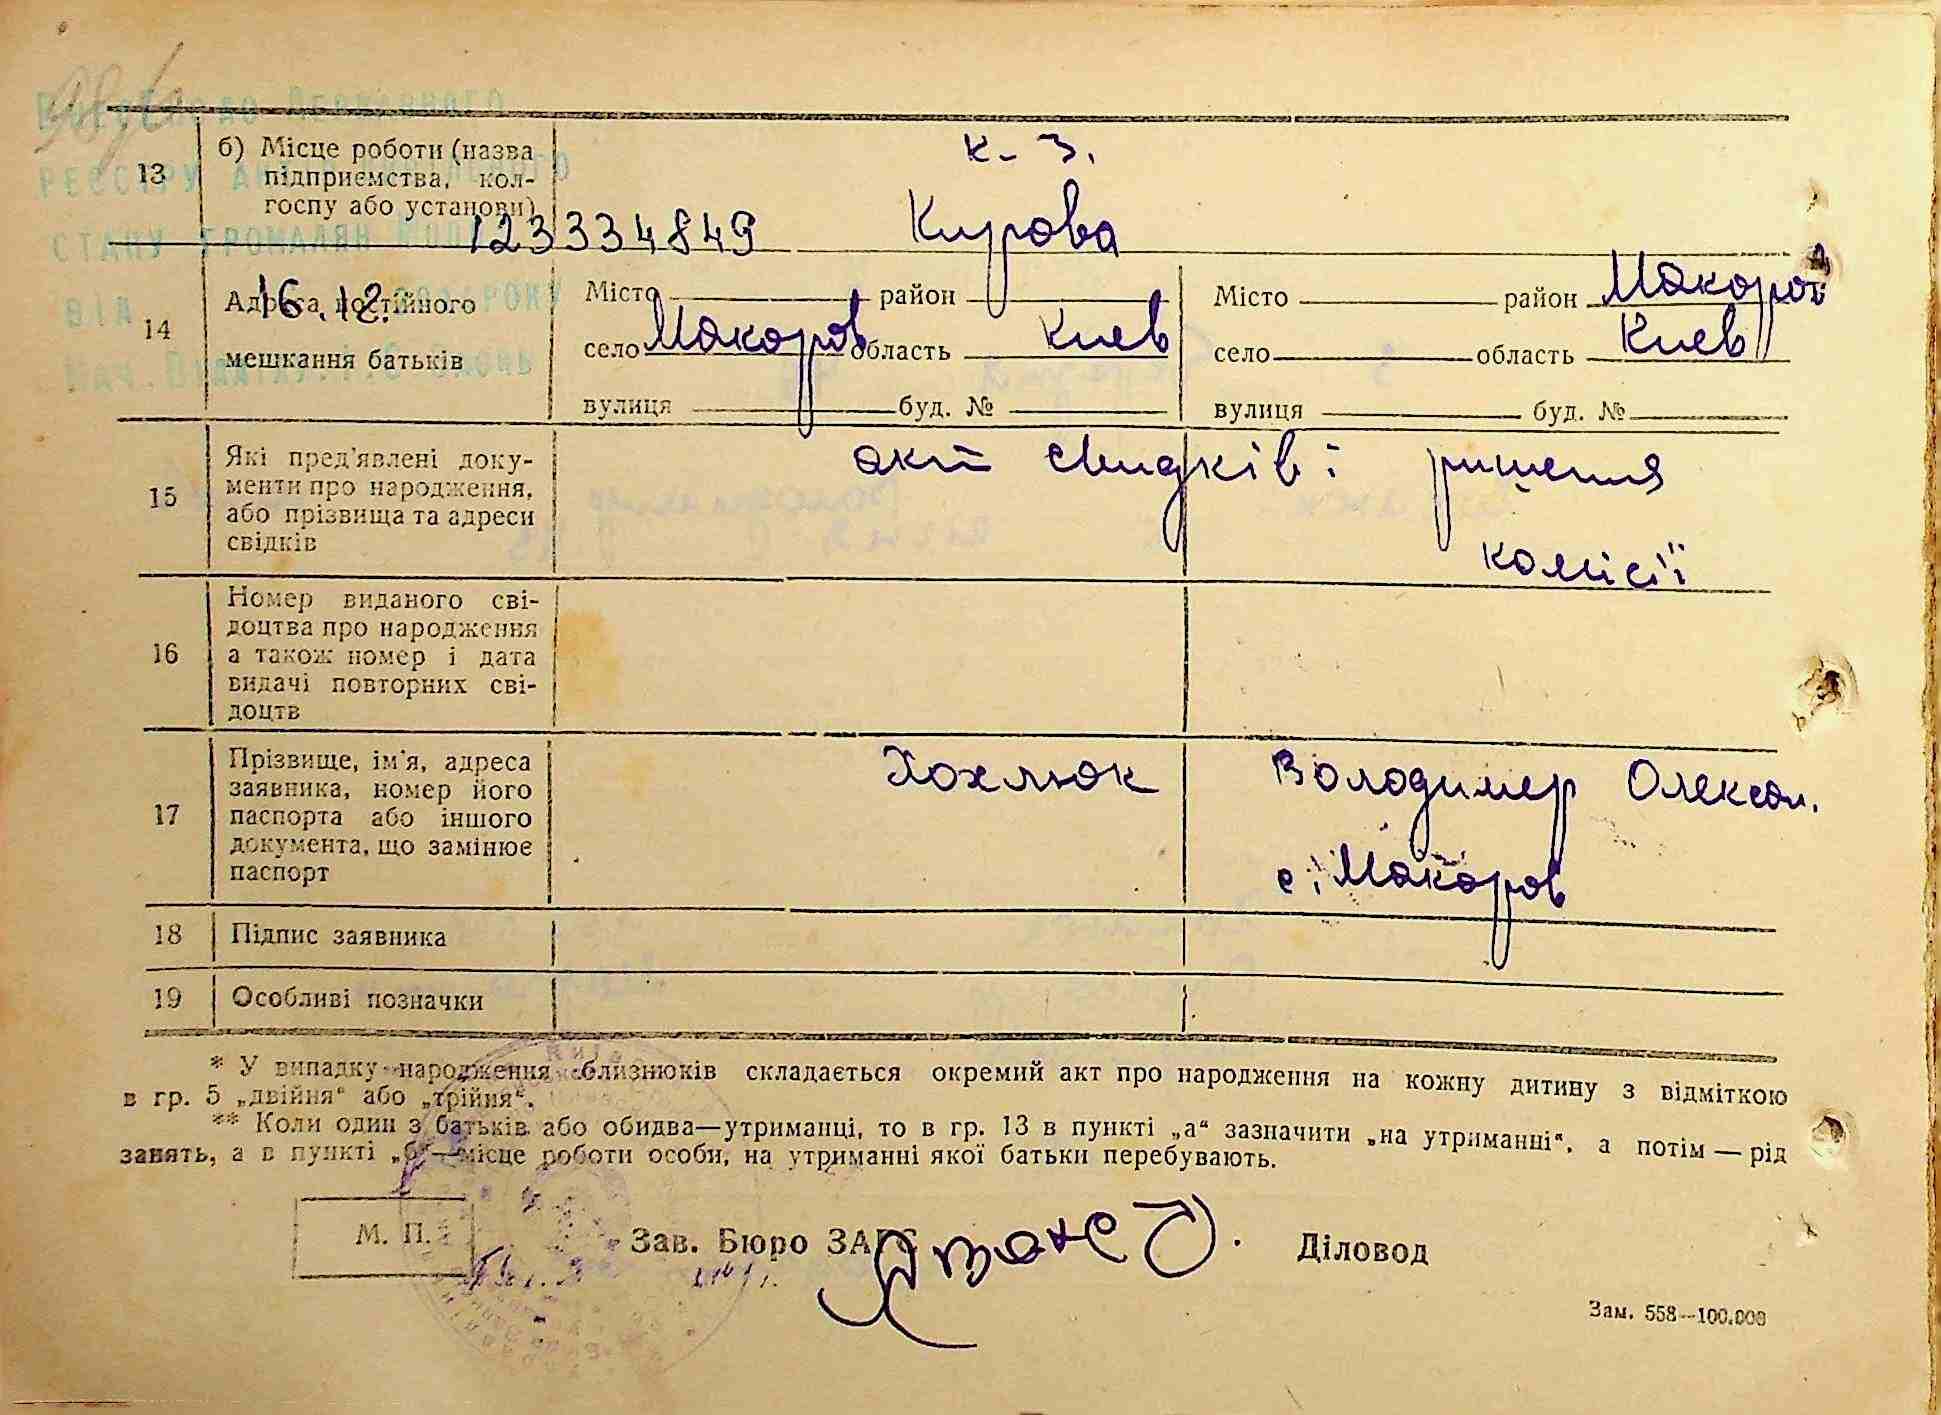 13 б) Місце роботи (назва
підприємства, кол-
госпу або установи)
к-з.
Кирова
РЕЄСТРУ
СТАНУ ГРОМАДЯН
123334849
ВІД РОКУ
16.12.
14 Адреса постійного
мешкання батьків
Місто район
село Макоров область Киев
вулиця буд. №
Місто район Макоров
село область Киев
вулиця буд. №
15 Які пред'явлені доку-
менти про народження,
або прізвища та адреси
свідків
акт свидків і ришення
комісії
16 Номер виданого сві-
доцтва про народження
а також номер і дата
видачі повторних сві-
доцтв
17 Прізвище, ім'я, адреса
заявника, номер його
паспорта або іншого
документа, що замінює
паспорт
Хохлюк Володимер Олексан.
с. Макоров
18 Підпис заявника
19 Особливі позначки
* У випадку народження близнюків складається окремий акт про народження на кожну дитину з відміткою
в гр. 5 „двійня“ або „трійня“.
** Коли один з батьків або обидва—утриманці, то в гр. 13 в пункті „а“ зазначити „на утриманні“, а потім — рід
занять, а в пункті „б“—місце роботи особи, на утриманні якої батьки перебувають.
М. П.
Зав. Бюро ЗАГС
Діловод
Зам. 558—100.000